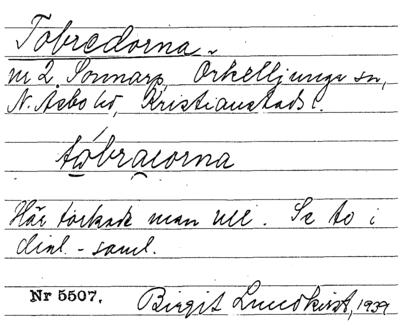 Tobredorna
nr 2. Sonnarp, Örkelljunga sn,
N. Åsbo hd, Kristianstads l.
tåbraɩorna
Här torkade man ull. Se to i
dial.-saml.
Nr 5507. Birgit Lundkvist, 1939